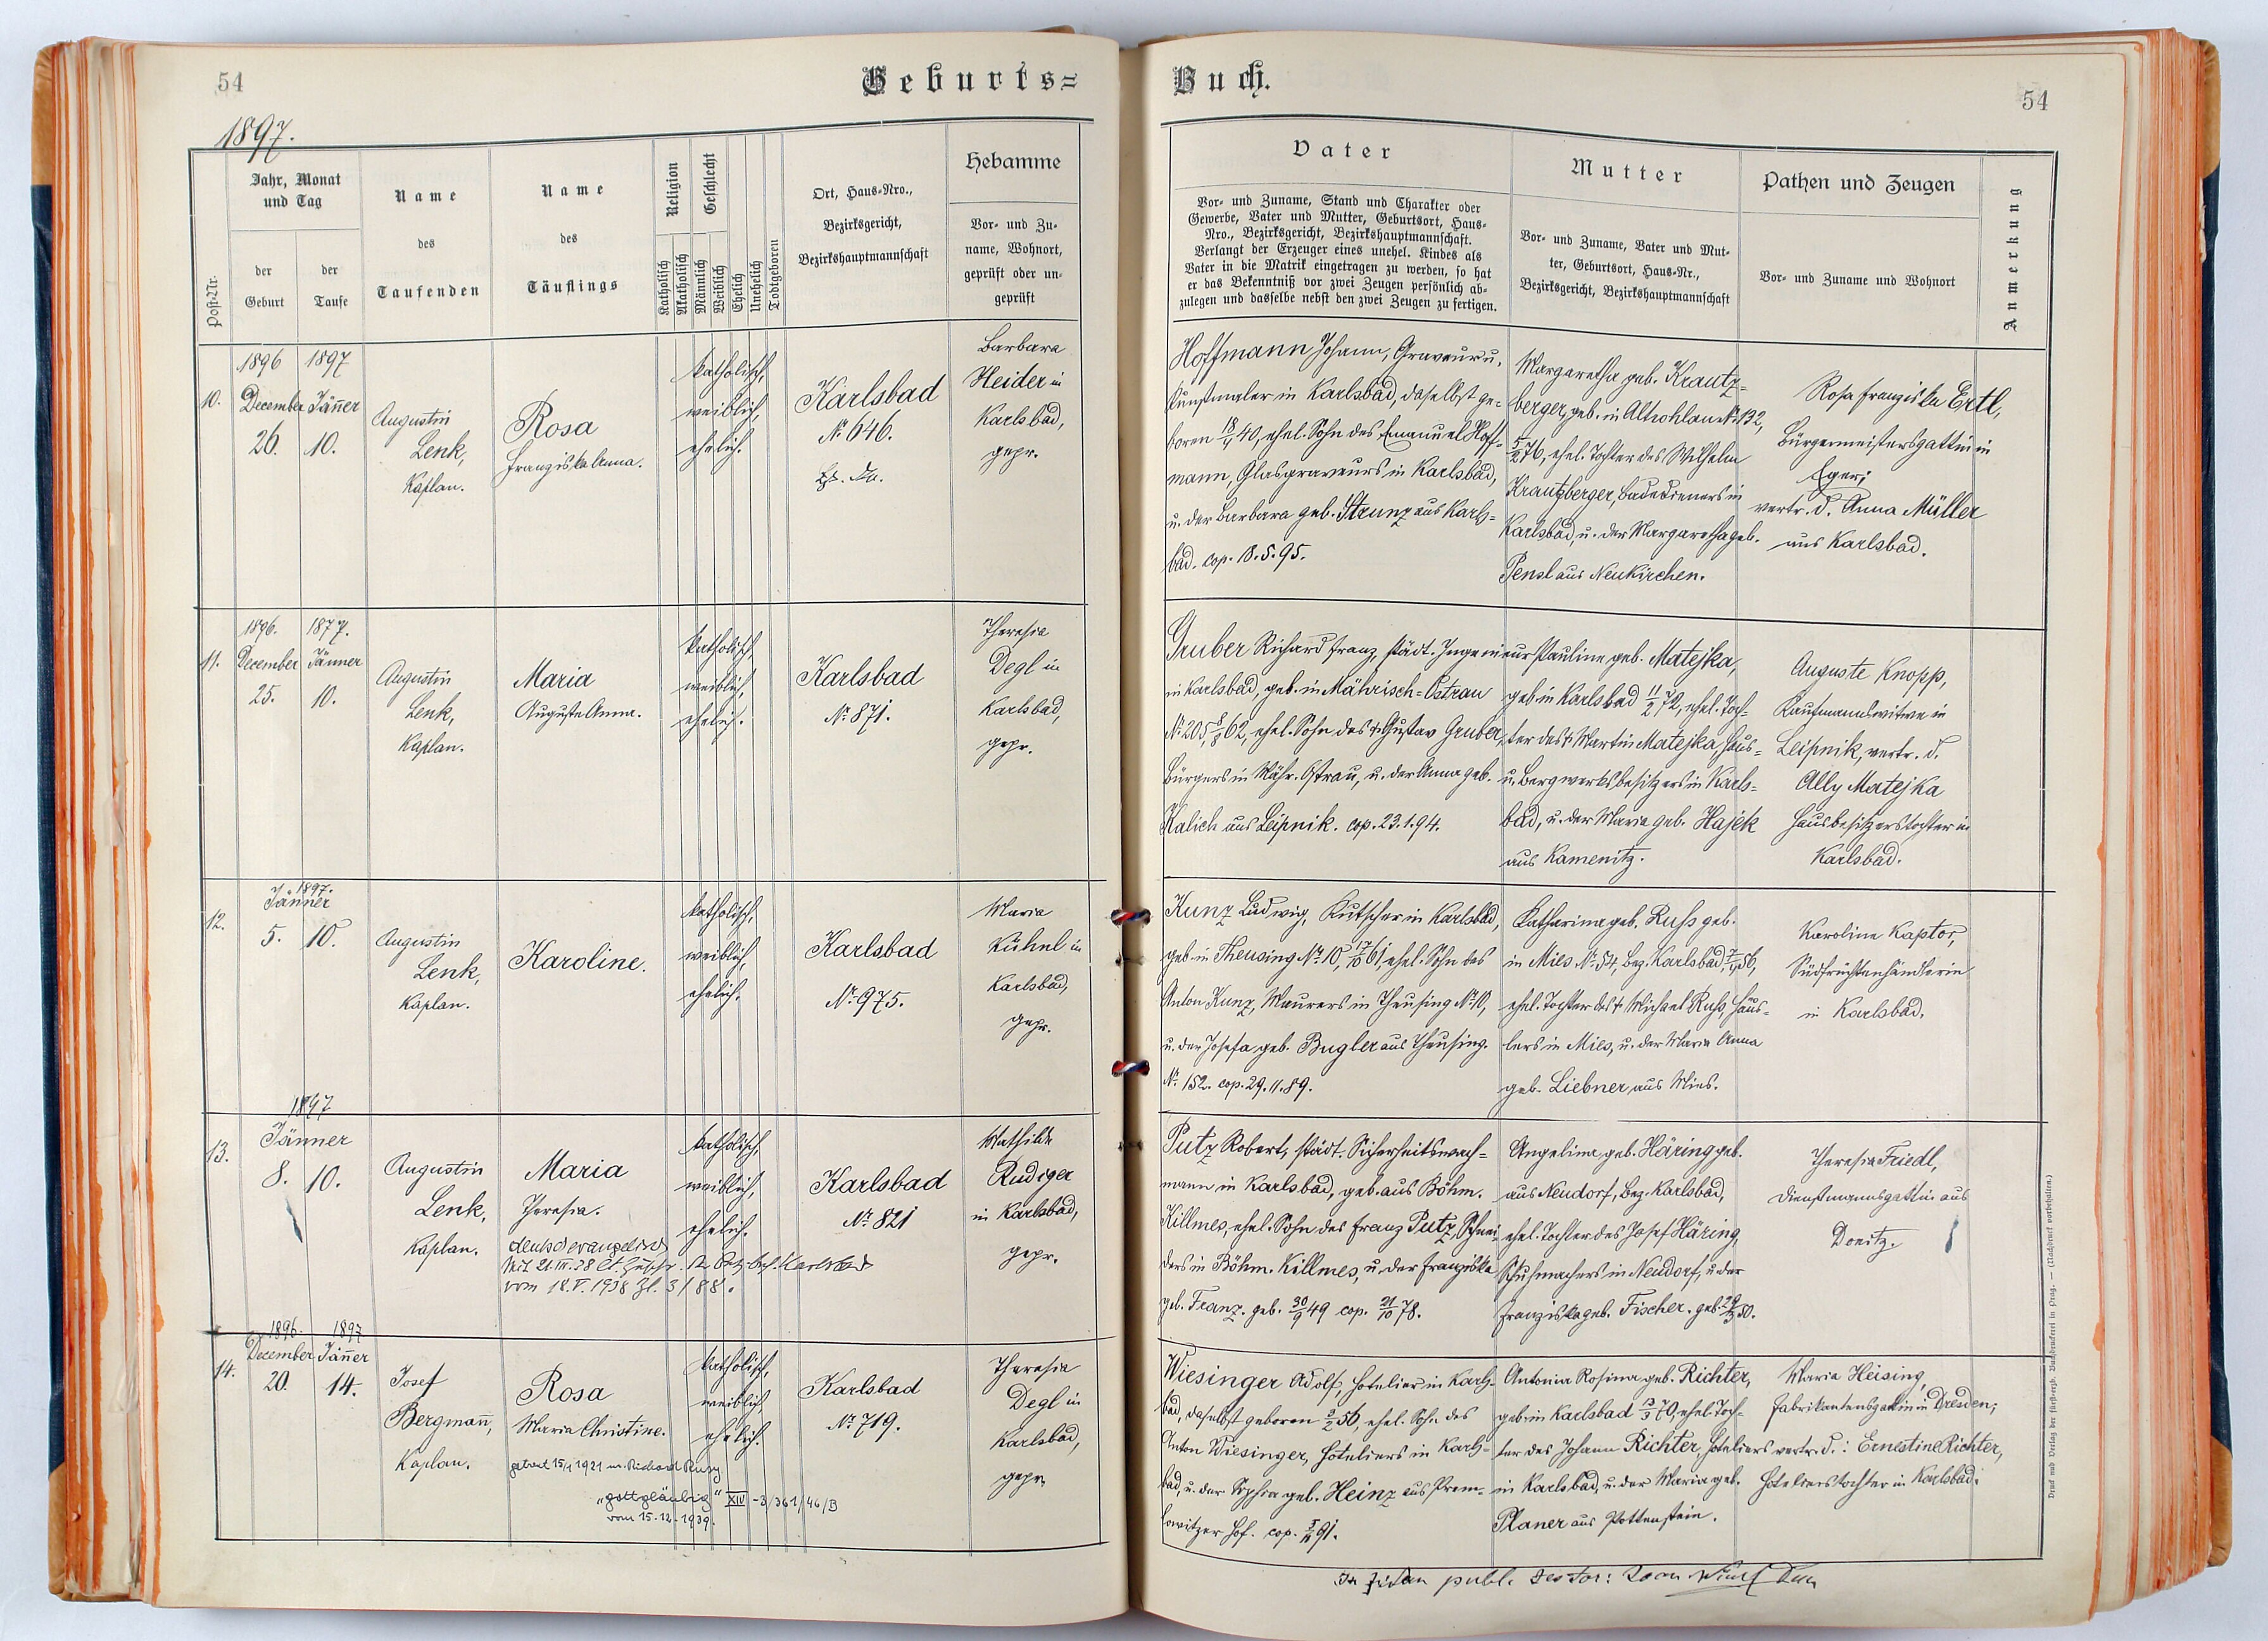 54
Geburts=
1897.
Post-Nr.
Jahr, Monat
und Tag
der
Geburt
der
Taufe
Name
des
Taufenden
Name
des
Täuflings
Religion
Katholisch
Akatholisch
Geschlecht
Männlich
Weiblich
Ehelich
Unehelich
Todtgeboren
Ort, Haus-Nro.,
Bezirksgericht,
Bezirkshauptmannschaft
Hebamme
Vor- und Zu-
name, Wohnort,
geprüft oder un-
geprüft
10.
1896 1897
December Jäner
26. 10.
Augustin
Lenk,
Kaplan.
Rosa
Franziska Anna.
katholisch,
weiblich,
ehelich.
Karlsbad
No 646.
Barbara
Heider in
Karlsbad,
gepr.
11.
1896. 1877.
December Jänner
25. 10.
Augustin
Lenk,
Kaplan.
Maria
Auguste Anna.
katholisch,
weiblich,
ehelich.
Karlsbad
No 871.
Theresia
Degl in
Karlsbad,
gepr.
12.
1897.
Jänner
5. 10.
Augustin
Lenk,
Kaplan.
Karoline.
katholisch,
weiblich,
ehelich.
Karlsbad
No 975.
Maria
Kühnl in
Karlsbad,
gepr.
13.
1897
Jänner
8. 10.
Augustin
Lenk,
Kaplan.
Maria
Theresia.
deutschevangelisch
seit 21.III.38 lt. Zuschr. d. Bez. Beh. Karlsbad
vom 18.V.1938 Zl. 3/88.
katholisch,
weiblich,
ehelich.
Karlsbad
No 821
Mathilde
Rudiger
in Karlsbad,
gepr.
14.
1896. 1897
December Jäner
20. 14.
Josef
Bergmann,
Kaplan.
Rosa
Maria Christine.
getraut 15/1 1921 m. Richard
"gottgläubig" XIV-3/361/46/B
vom 15.12.1939.
katholisch,
weiblich,
ehelich.
Karlsbad
No 719.
Theresia
Degl in
Karlsbad,
gepr.
Buch.
54
Vater
Vor- und Zuname, Stand und Charakter oder
Gewerbe, Vater und Mutter, Geburtsort, Haus-
Nro., Bezirksgericht, Bezirkshauptmannschaft.
Verlangt der Erzeuger eines unehel. Kindes als
Vater in die Matrik eingetragen zu werden, so hat
er das Bekenntniß vor zwei Zeugen persönlich ab-
zulegen und dasselbe nebst den zwei Zeugen zu fertigen.
Mutter
Vor- und Zuname, Vater und Mut-
ter, Geburtsort, Haus-Nr.,
Bezirksgericht, Bezirkshauptmannschaft
Pathen und Zeugen
Vor- und Zuname und Wohnort
Anmerkung
Hoffmann Johann, Graveur u.
Kunstmaler in Karlsbad, daselbst ge-
boren 18/4 40, ehel. Sohn des Emanuel Hoff-
mann, Glasgraveurs in Karlsbad,
u. der Barbara geb. Strunz aus Karls-
bad. cop. 18.5.95.
Margaretha geb. Krautz-
berger, geb. in Altrohlau No 132,
5/2 76, ehel. Tochter des Wilhelm
Krautzberger, Badedieners in
Karlsbad, u. der Margaretha geb.
Pensl aus Neukirchen.
Rosa Franziska Ertl,
Bürgermeistersgattin in
Eger;
vertr. d. Anna Müller
aus Karlsbad.
Gruber Richard Franz, städt. Ingenieur
in Karlsbad, geb. in Mährisch-Ostrau
No 205, 8/8 62, ehel. Sohn des † Gustav Gruber,
Bürgers in Mähr. Ostrau, u. der Anna geb.
Kalich aus Leipnik. cop. 23.1.94.
Pauline geb. Matejka,
geb. in Karlsbad 11/2 72, ehel. Toch-
ter des † Martin Matejka, Haus-
u. Bergwerksbesitzers in Karls-
bad, u. der Maria geb. Hajek
aus Kamenitz.
Auguste Knopp,
Kaufmannswitwe in
Leipnik, vertr. d.
Ally Matejka
Hausbesitzerstochter in
Karlsbad.
Kunz Ludwig, Kutscher in Karlsbad,
geb. in Theusing No 10, 17/10 61, ehel. Sohn des
Anton Kunz, Maurers in Theusing No 10,
u. der Josefa geb. Bugler aus Theusing.
No 152. cop. 29.11.89.
Katharina geb. Russ geb.
in Mies No 54, Bez. Karlsbad, 56,
ehel. Tochter des † Michael Russ, Häus-
lers in Mies, u. der Maria Anna
geb. Liebner aus Mies.
Karoline Kaptor,
Südfrüchtenhändlerin
in Karlsbad.
Putz Robert, städt. Sicherheitswach-
mann in Karlsbad, geb. aus Böhm.
Killmes, ehel. Sohn des Franz Putz, Schnei-
ders in Böhm. Killmes, u. der Franziska
geb. Franz. geb. 30/9 49 cop. 21/10 78.
Angelina geb. Häring geb.
aus Neudorf, Bez. Karlsbad,
ehel. Tochter des Josef Häring,
Schuhmachers in Neudorf, u. der
Franziska geb. Fischer. geb. 50.
Theresia Friedl,
Dienstmannsgattin aus
Donitz.
Wiesinger Adolf, Hotelier in Karls-
bad, daselbst geboren 3/2 56, ehel. Sohn des
Anton Wiesinger, Hoteliers in Karls-
bad, u. der Sophia geb. Heinz aus Prom-
lowitzer Hof. cop. 91.
Antonia Rosina geb. Richter,
geb. in Karlsbad 13/3 70, ehel. Toch-
ter des Johann Richter, Hoteliers
in Karlsbad, u. der Maria geb.
Planer aus Pottenstein.
Maria Heising,
Fabrikantensgattin in Dresden,
vertr. d.: Ernestine Richter,
Hotelierstochter in Karlsbad.
Druck und Verlag der fürst-erzb. Buchdruckerei in Prag. — (Nachdruck vorbehalten.)